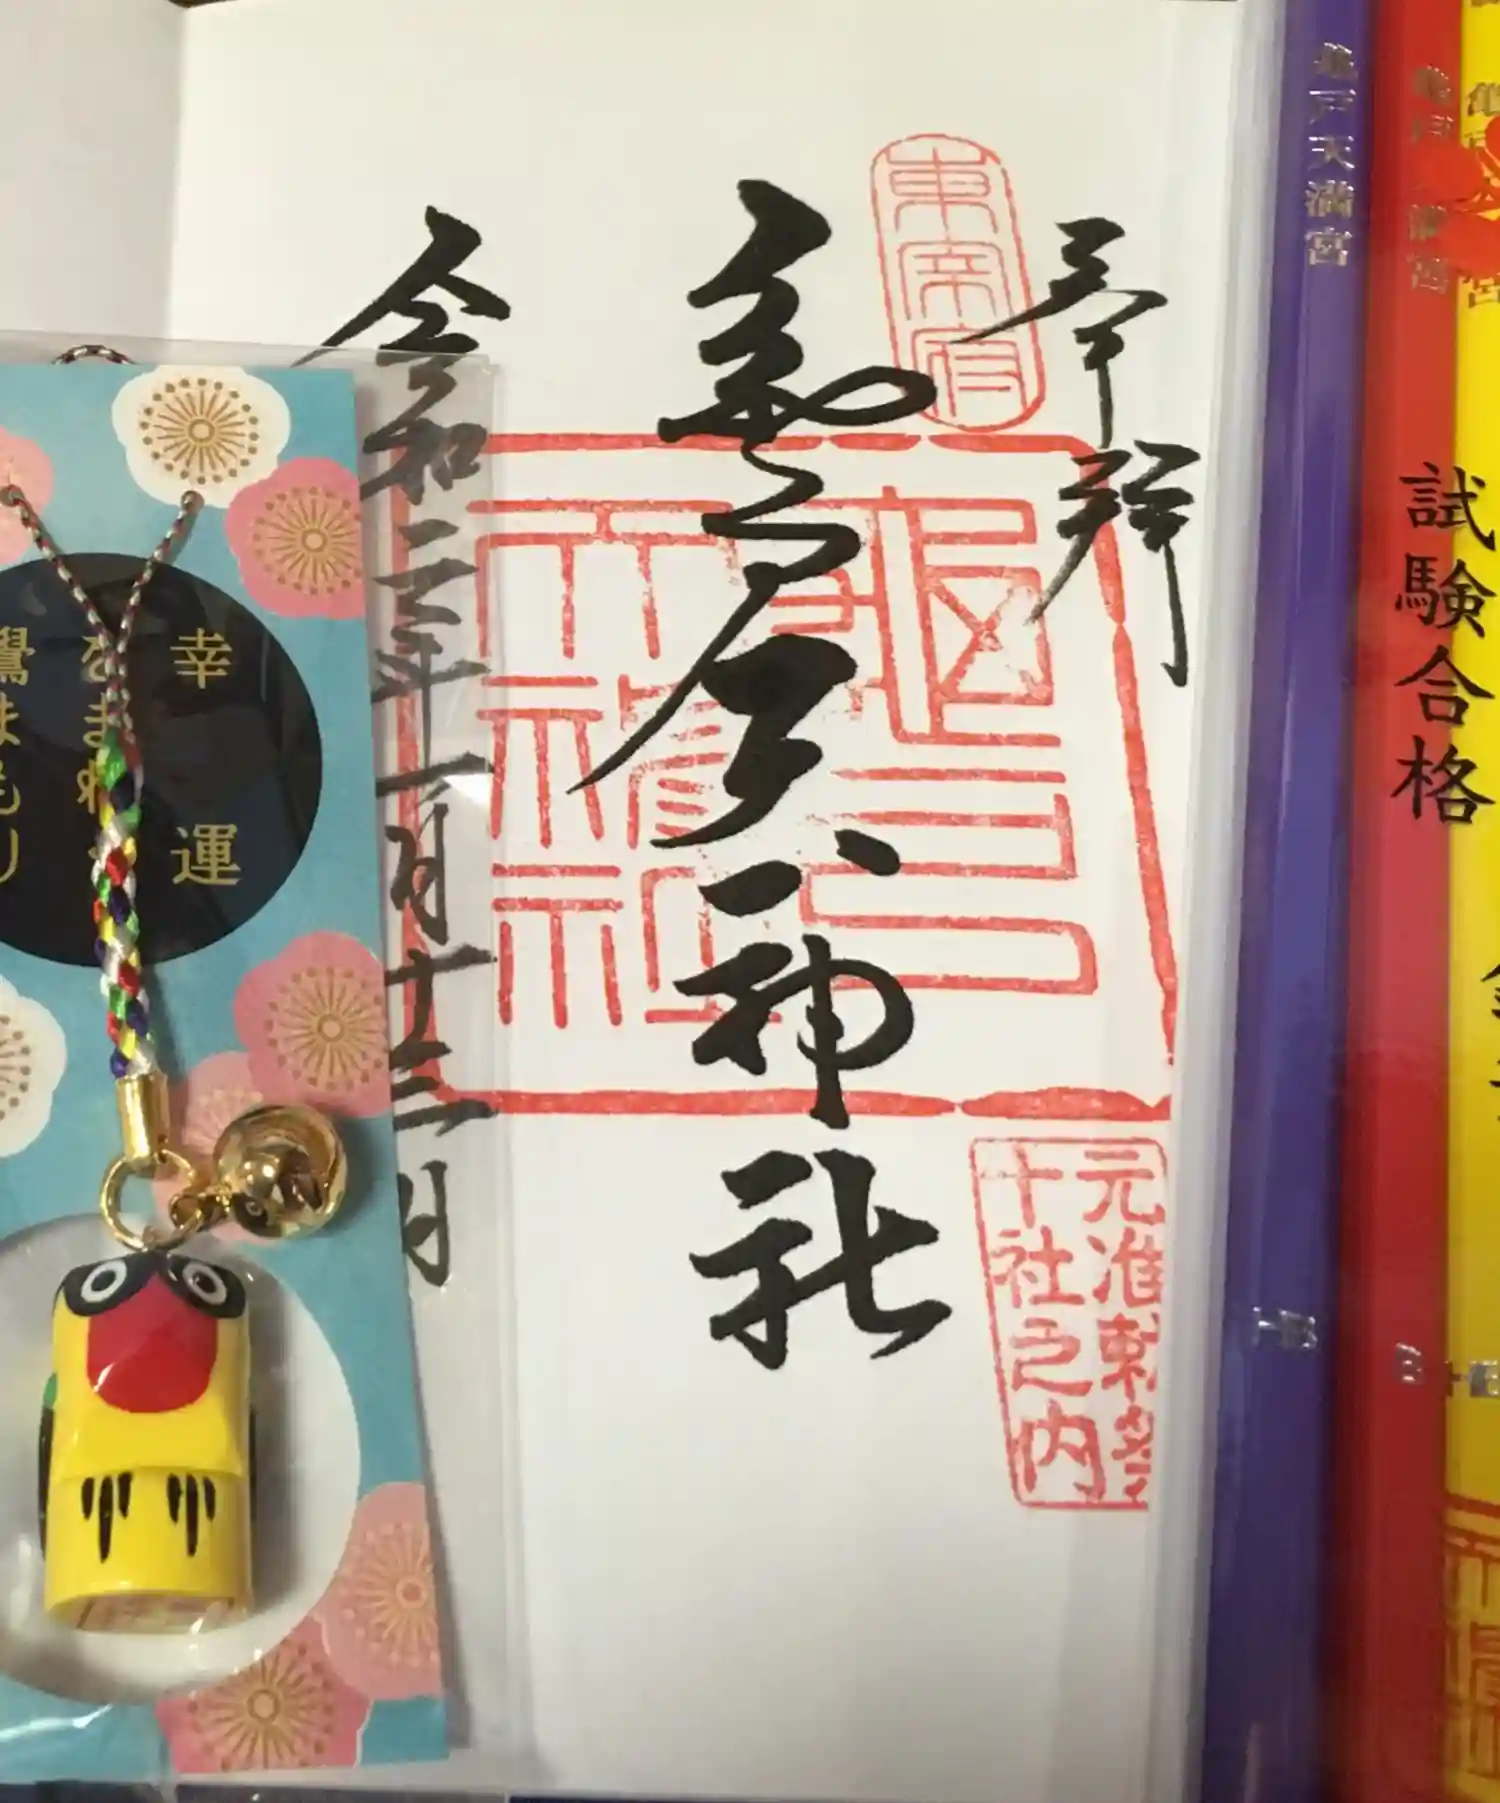 奉拝
東宰府
亀戸天神社
元准勅祭
十社之内
令和二年一月十三日
幸運
をまねく
鷽まもり
亀戸天満宮
試験合格